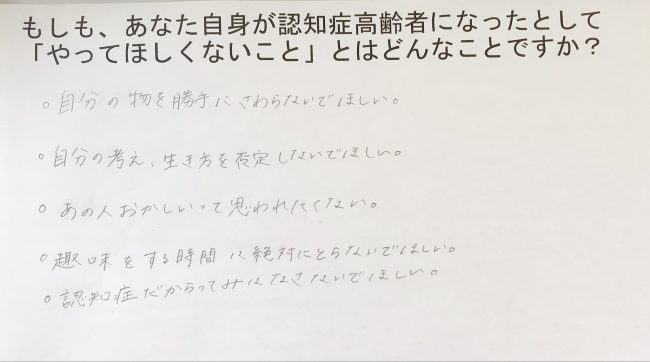 もしも、あなた自身が認知症高齢者になったとして
「やってほしくないこと」とはどんなことですか？
○ 自分の物を勝手にさわらないでほしい。
○ 自分の考え、生き方を否定しないでほしい。
○ あの人おかしいって思われたくない。
○ 趣味をする時間は絶対にとらないでほしい。
○ 認知症だからってみはなさないでほしい。